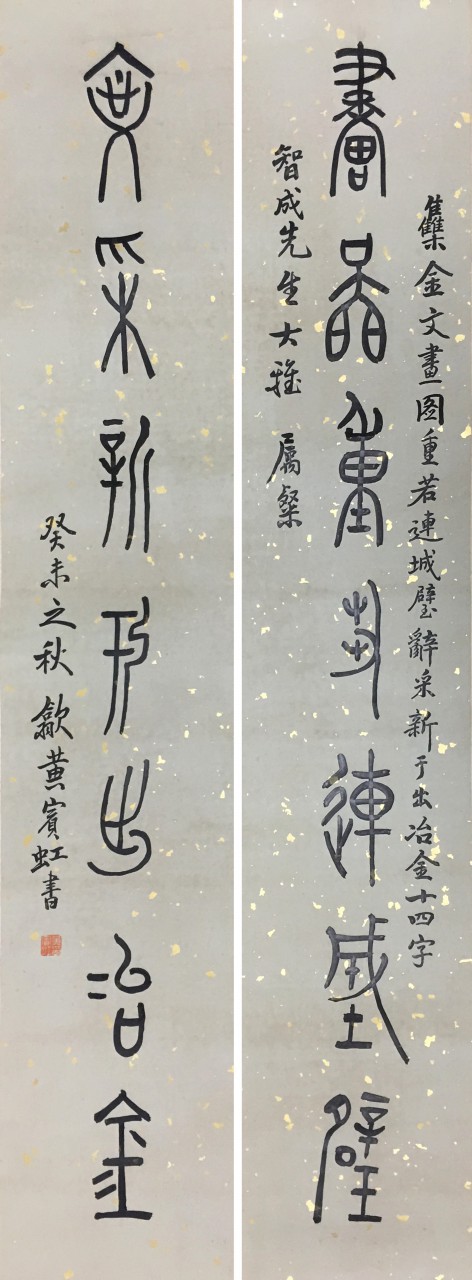 集金文畫图重若連城璧辭采新于出冶金十四字
畫圖重若連城璧
智成先生大雅 屬粲
辭采新于出冶金
癸未之秋 歙黄賓虹書